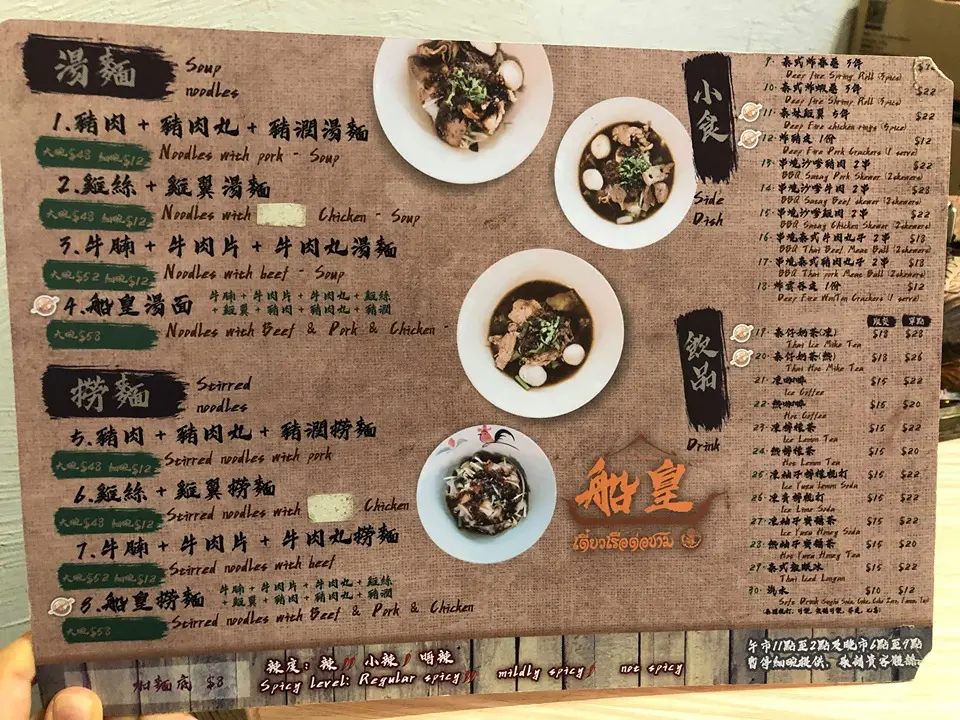 湯麵
Soup
noodles
1.豬肉 + 豬肉丸 + 豬潤湯麵
大碗$48 細碗$12
Noodles with pork - Soup
2.雞絲 + 雞翼湯麵
大碗$48 細碗$12
Noodles with Chicken - Soup
3.牛腩 + 牛肉片 + 牛肉丸湯麵
大碗$52 細碗$12
Noodles with beef - Soup
4.船皇湯面
牛腩 + 牛肉片 + 牛肉丸 + 雞絲
+ 雞翼 + 豬肉 + 豬肉丸 + 豬潤
大碗$58
Noodles with Beef & Pork & Chicken -
撈麵
Stirred
noodles
5.豬肉 + 豬肉丸 + 豬潤撈麵
大碗$48 細碗$12
Stirred noodles with pork
6.雞絲 + 雞翼撈麵
大碗$48 細碗$12
Stirred noodles with Chicken
7.牛腩 + 牛肉片 + 牛肉丸撈麵
大碗$52 細碗$12
Stirred noodles with beef
8.船皇撈麵
牛腩 + 牛肉片 + 牛肉丸 + 雞絲
+ 雞翼 + 豬肉 + 豬肉丸 + 豬潤
大碗$58
Stirred noodles with Beef & Pork & Chicken
小食
Side
Dish
9. 泰式炸春卷 3件
Deep fire Spring Roll (3pice)
10. 泰式炸蝦卷 3件 $22
Deep fire Shrimp Roll (3pice)
11. 泰妹雞翼 5件 $22
Deep Fire chicken rings (5pice)
12. 炸豬皮 1份 $12
Deep Fire Pork Crackers (1 serve)
13. 串燒沙嗲豬肉 2串 $22
BBQ Satay Pork Skewer (2skewers)
14. 串燒沙嗲牛肉 2串 $28
BBQ Satay Beef skewer (2skewers)
15. 串燒沙嗲雞肉 2串 $22
BBQ Satay Chicken Skewer (2skewers)
16. 串燒泰式牛肉丸子 2串 $18
BBQ Thai Beef Meat Ball (2skewers)
17. 串燒泰式豬肉丸子 2串 $18
BBQ Thai pork Meat Ball (2skewers)
18. 炸雲吞皮 1份 $12
Deep Fire WonTon Crackers (1 serve)
飲品
Drink
跟餐 單點
19. 泰仔奶茶(凍) $18 $28
Thai Ice Milke Tea
20. 泰仔奶茶(熱) $18 $26
Thai Hot Milke Tea
21. 凍咖啡 $15 $22
Ice Coffee
22. 熱咖啡 $15 $20
Hot Coffee
23. 凍檸檬茶 $15 $22
Ice Lemon Tea
24. 熱檸檬茶 $15 $20
Hot Lemon Tea
25. 凍柚子檸檬梳打 $15 $22
Ice Yuzu Lemon Soda
26. 凍青檸梳打 $15 $22
Ice Lime Soda
27. 凍柚子蜜糖茶 $15 $22
Ice Yuzu Honey Soda
28. 熱柚子蜜糖茶 $15 $20
Hot Yuzu Honey Tea
29. 泰式龍眼冰 $15 $22
Thai Iced Longan
30. 汽水 $10 $12
船皇
加麵底 $8
辣度: 辣 小辣 唔辣
Spicy Level: Regular spicy mildly spicy not spicy
午市11點至2點及晚市6點至9點
暫停細碗提供, 敬請貴客體諒